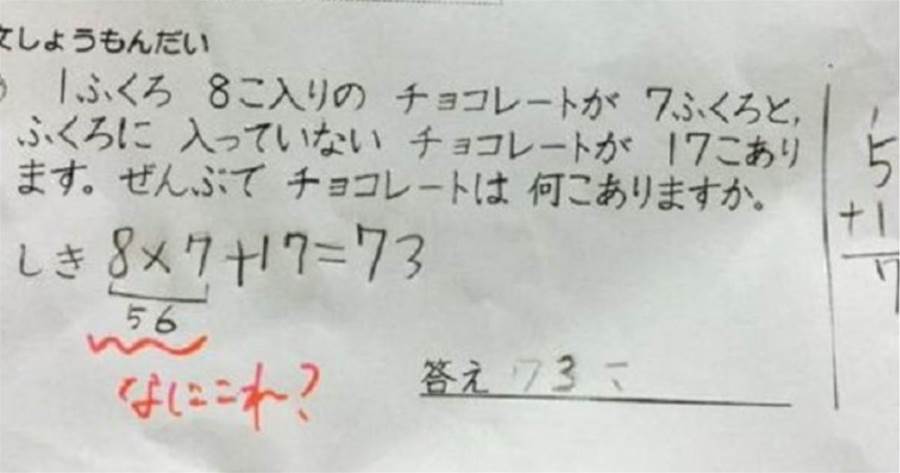 文しょうもんだい
1ふくろ 8こ入りの チョコレートが 7ふくろと,
ふくろに 入っていない チョコレートが 17こあり
ます。ぜんぶで チョコレートは 何こありますか。
しき 8×7+17=73
56
なにこれ?
答え 73こ
1
5
+1
7